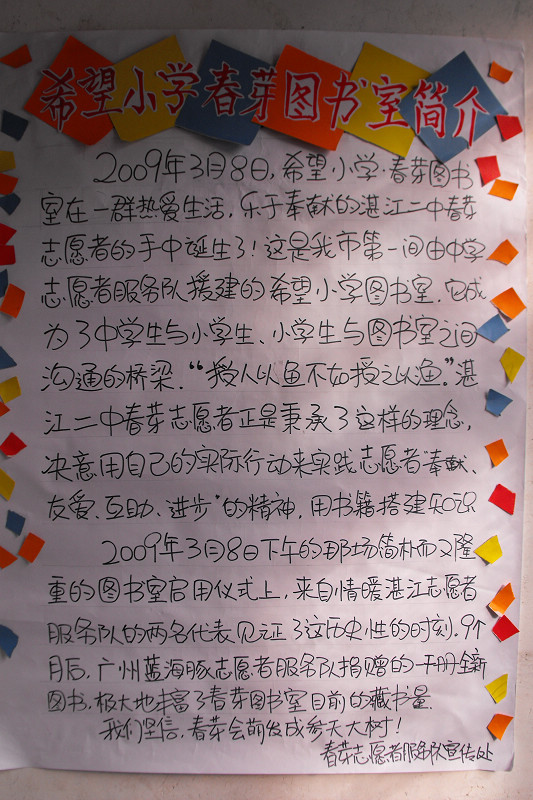 希望小学春芽图书室简介
2009年3月8日,希望小学·春芽图书
室在一群热爱生活,乐于奉献的湛江二中春芽
志愿者的手中诞生了!这是我市第一间由中学
志愿者服务队援建的希望小学图书室.它成
为了中学生与小学生、小学生与图书室之间
沟通的桥梁.“授人以鱼不如授之以渔.”湛
江二中春芽志愿者正是秉承了这样的理念,
决意用自己的实际行动来实践志愿者“奉献、
友爱、互助、进步”的精神,用书籍搭建知识
2009年3月8日下午的那场简朴而又隆
重的图书室启用仪式上,来自情暖湛江志愿者
服务队的两名代表见证了这历史性的时刻.9个
月后,广州蓝海豚志愿者服务队捐赠的一千册全新
图书,极大地丰富了春芽图书室目前的藏书量.
我们坚信,春芽会萌发成参天大树!
春芽志愿者服务队宣传处